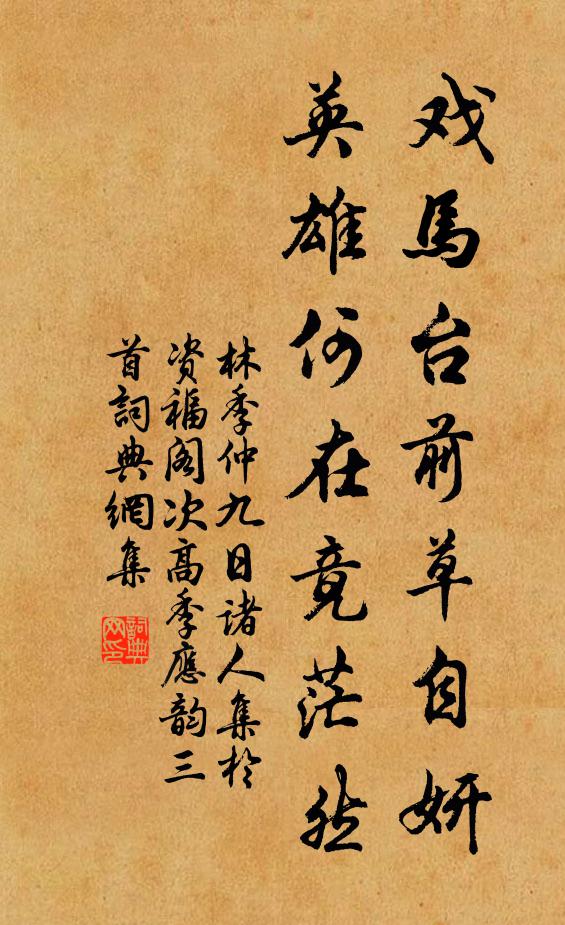 戏馬台前草自妍
英雄何在竟茫然
林季仲九日诸人集於
资福阁次高季應韵三
首詞典網集
詞典网印